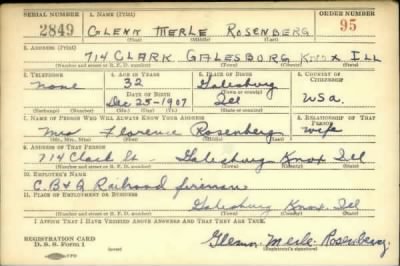 SERIAL NUMBER 1. NAME (Print) ORDER NUMBER
2849 GLENN MERLE ROSENBERG 95
(First) (Middle) (Last)
2. ADDRESS (Print)
714 CLARK GALESBURG KNOX ILL
(Number and street or R. F. D. number) (Town) (County) (State)
3. TELEPHONE 4. AGE IN YEARS 5. PLACE OF BIRTH 6. COUNTRY OF CITIZENSHIP
None 32 Galesburg
DATE OF BIRTH (Town or county)
Dec 25-1907 Ill USA.
(Exchange) (No.) (Mo.) (Day) (Yr.) (State or country)
7. NAME OF PERSON WHO WILL ALWAYS KNOW YOUR ADDRESS 8. RELATIONSHIP OF THAT PERSON
Mrs Florence Rosenberg wife
(Mr., Mrs., Miss) (First) (Middle) (Last)
9. ADDRESS OF THAT PERSON
714 Clark St. Galesburg Knox Ill
(Number and street or R. F. D. number) (Town) (County) (State)
10. EMPLOYER'S NAME
C.B&Q Railroad fireman
11. PLACE OF EMPLOYMENT OR BUSINESS
Galesburg Knox Ill
(Number and street or R. F. D. number) (Town) (County) (State)
I AFFIRM THAT I HAVE VERIFIED ABOVE ANSWERS AND THAT THEY ARE TRUE.
REGISTRATION CARD
D. S. S. Form 1
Glenn Merle Rosenberg
(Registrant's signature)